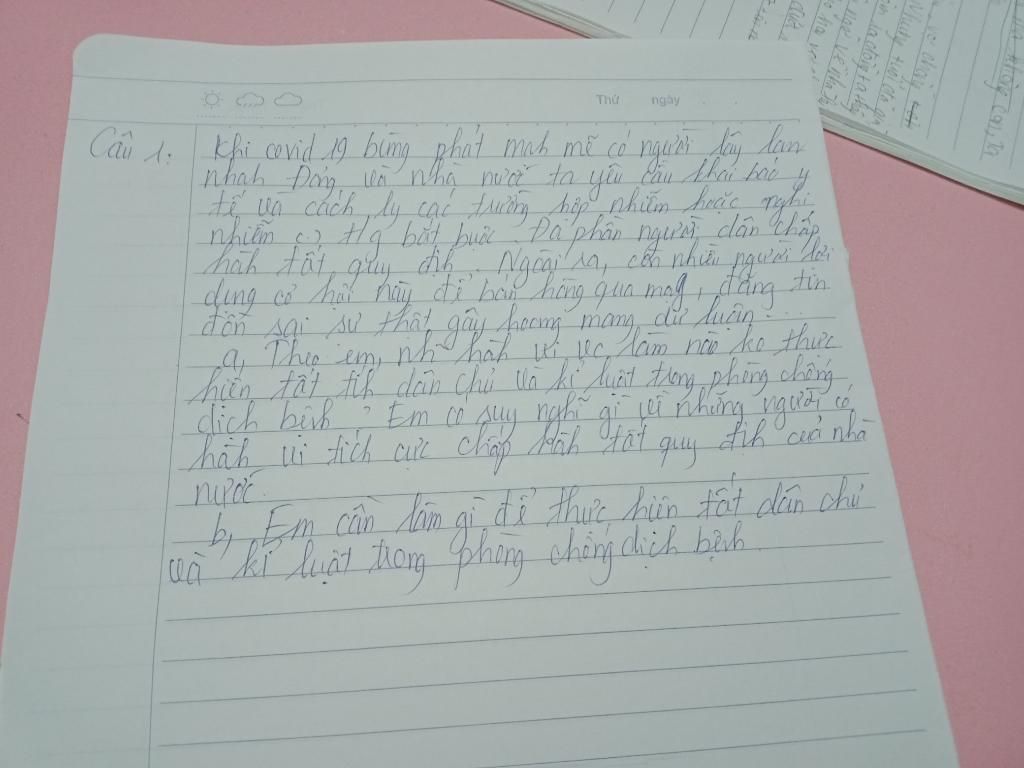 Thứ ngày
Câu 1: Khi covid 19 bùng phát mạh mẽ có người lây lan
nhah Đảng và nhà nước ta yêu cầu khai báo y
tế và cách ly các trường hợp nhiễm hoặc nghi
nhiễm bắt buộc. Đa phần người dân chấp
hàh tốt quy địh. Ngoài ra, còn nhiều người lợi
dụng cơ hội này để bán hàng qua mạg, đăng tin
đồn sai sự thật gây hoang mang dư luận...
a, Theo em, nh hàh vi vc làm nào ko thực
hiện tốt tíh dân chủ và kỉ luật trong phòng chống
dịch bệnh? Em có suy nghĩ gì về những người có
hàh vi tích cực chấp hàh tốt quy địh của nhà
nước.
b, Em cần làm gì để thực hiện tốt dân chủ
và kỉ luật trong phòng chống dịch bệnh.